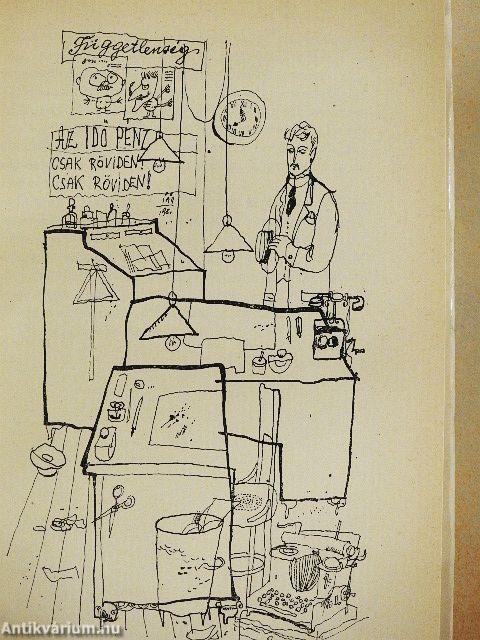 Függetlenség
AZ IDŐ PÉNZ
CSAK RÖVIDEN!
CSAK RÖVIDEN!
Antikvárium.hu